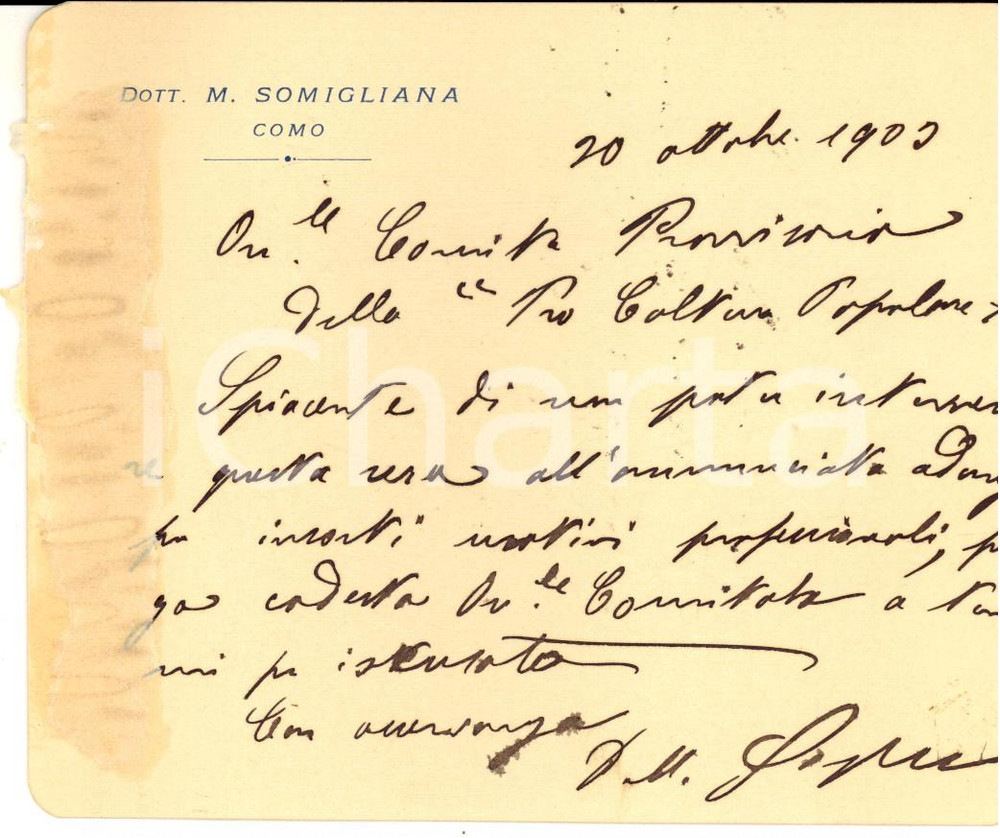 DOTT. M. SOMIGLIANA
COMO
20 ottobre 1903
On.le Comitato Provvisorio
della "Pro Coltura Popolare"
Spiacente di non poter interveni
re questa sera all'annunciata adun
per insorti motivi professionali, pr
go codesto On.le Comitato a ten
mi per iscusato
Con osservanza
Dott.
iCharta